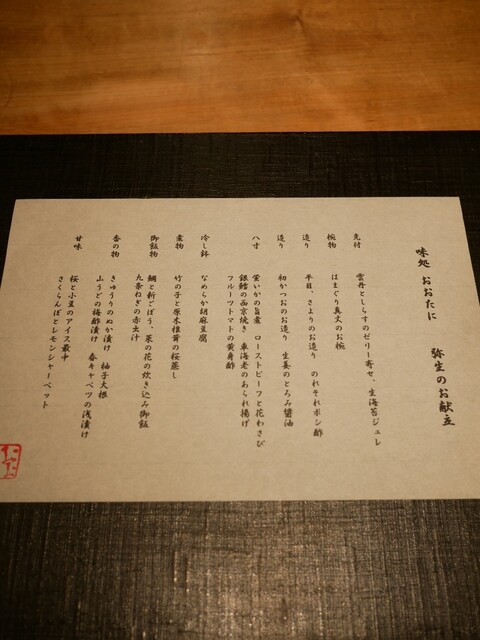 味処 おおたに 弥生のお献立
先付 雲丹としらすのゼリー寄せ、生海苔ジュレ
椀物 はまぐり真丈のお椀
造り 平目、さよりのお造り のれそれポン酢
造り 初かつおのお造り 生姜のとろみ醤油
八寸 蛍いかの旨煮 ローストビーフと花わさび
銀鱈の西京焼き 車海老のあられ揚げ
フルーツトマトの黄身酢
冷し鉢 なめらか胡麻豆腐
煮物 竹の子と原木椎茸の桜蒸し
御飯物 鯛と新ごぼう、菜の花の炊き込み御飯
九条ねぎの赤出汁
香の物 きゅうりのぬか漬け 柚子大根
山うどの梅酢漬け 春キャベツの浅漬け
甘味 桜と小豆のアイス最中
さくらんぼとレモンシャーベット